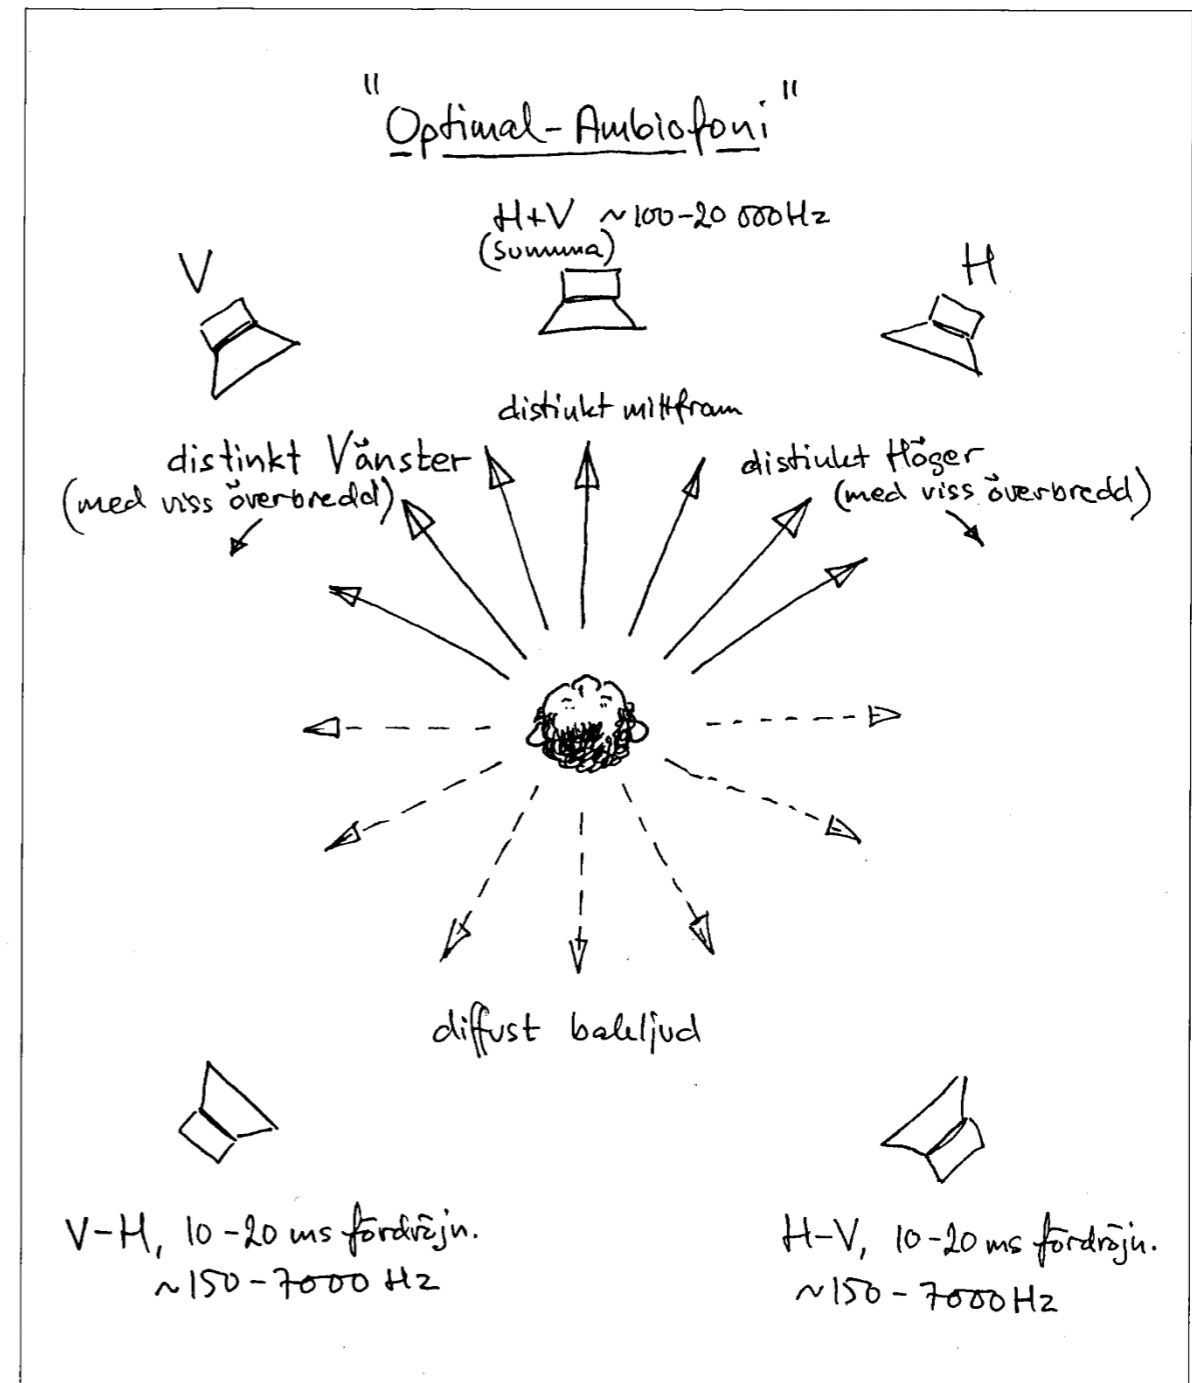 "Optimal-Ambiofoni"
H+V ~100-20 000Hz
(summa)
V
H
distinkt mittfram
distinkt Vänster
(med viss överbredd)
distinkt Höger
(med viss överbredd)
diffust bakljud
V-H, 10-20 ms fördröjn.
~150-7000 Hz
H-V, 10-20 ms fördröjn.
~150-7000Hz